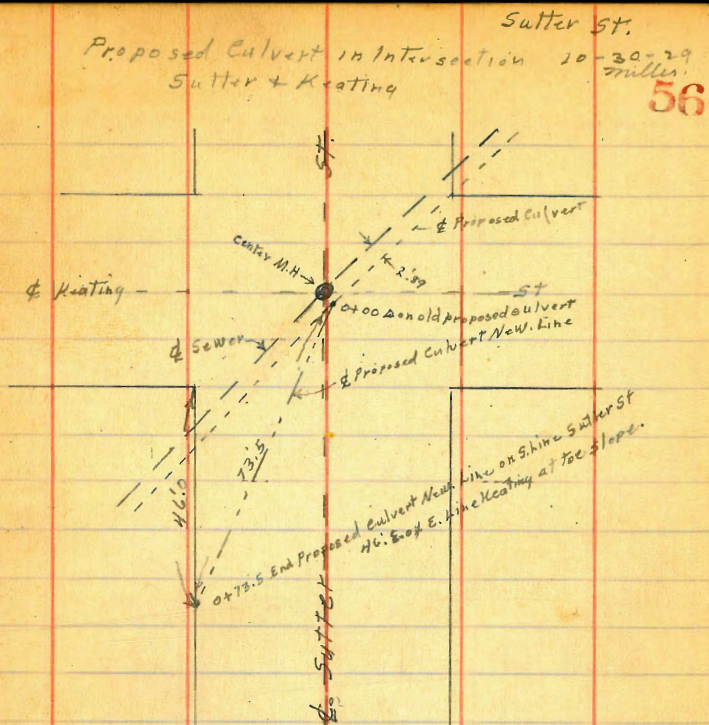 Sutter St.
Proposed Culvert in Intersection 10-30-29
Sutter & Keating
Miller.
56
St.
℄ Proposed Culvert
Center M.H.
2.'89
℄ Keating
St
0+00 ∆ on old proposed culvert
℄ Sewer
℄ Proposed Culvert New. Line
73.5
46.0
0+73.5 End Proposed Culvert New. Line on S. Line Sutter St
46'. E. of E. Line Keating at toe Slope.
℄ Sutter